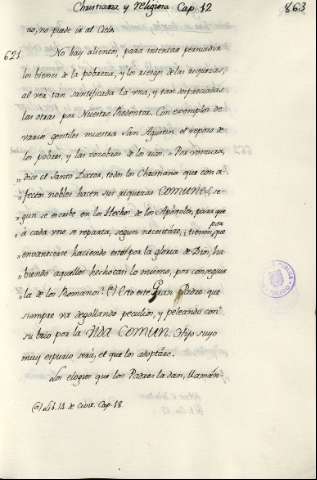 Christiana y Religiosa Cap. 12
863
no, no puede ir al Cielo.
621. No hay aliento, para intentar persuadir
los bienes de la pobreza, y los riesgos de las riquezas,
al ver tan santificada la una, y tan despreciadas
las otras por Nuestro Redentor. Con exemplos de
varios gentiles muestra San Agustin el reposo de
los pobres, y las zozobras de los ricos. Por ventura,
dice el Santo Doctor, todos los Christianos que con a-
feccion nobles hacen sus riquezas comunes, se-
gun se escribe en los Hechos de los Apostoles, para que
á cada uno se reparta, segun necesitare, tienen por
que
envanecerse haciendo esto por la gloria de Dios, ha-
biendo aquellos hecho casi lo mismo, por conseguir
la de los Romanos? (a) Esto este Gran Padre, que
siempre va degollando peculios, y peleando con
su brio por la Vida Comun. Hijo suyo
muy espurio será, el que los adoptáre.
Los elogios que los Padres la dan, llamán-
(a) Lib. 5. de Civit. Cap. 18.